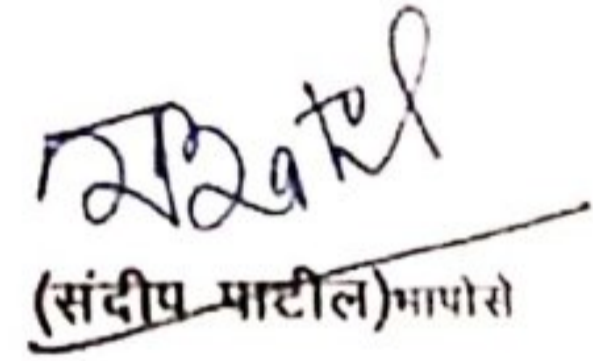 (संदीप पाटील)भापोसे